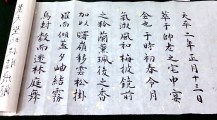 天平二年正月十三日
萃于帥老之宅申宴
會也于時初春令月
氣淑風和梅披鏡前
之粉蘭薫珮後之香
加以曙嶺移雲松掛
羅而傾盖夕岫結霧
鳥封縠而迷林庭舞